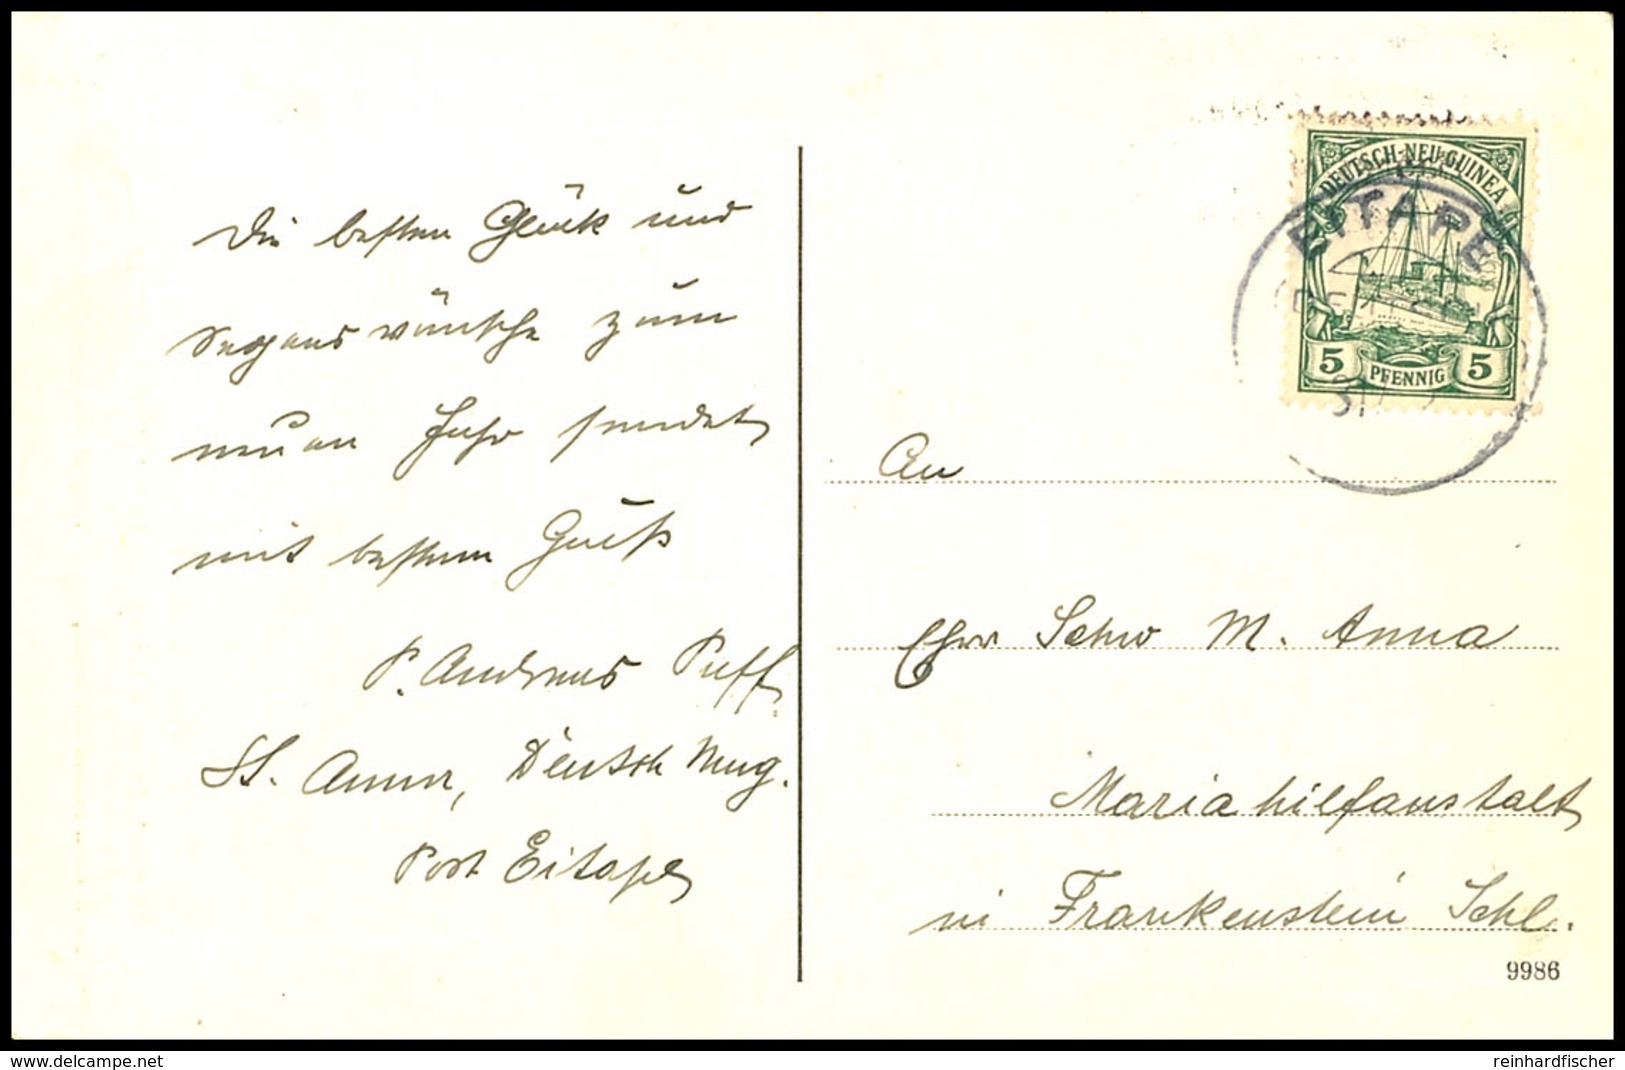 Die besten Glück und
Segenswünsche zum
neuen Jahr sendet
mit bestem Gruß
P. Andreas Puff.
St. Anna, Deutsch Neug.
Post Eitape
DEUTSCH-NEU-GUINEA
EITAPE
5 PFENNIG 5
An
Ehrw Schw M. Anna
Mariahilfanstalt
in Frankenstein Schl.
9986
www.delcampe.net
reinhardfischer